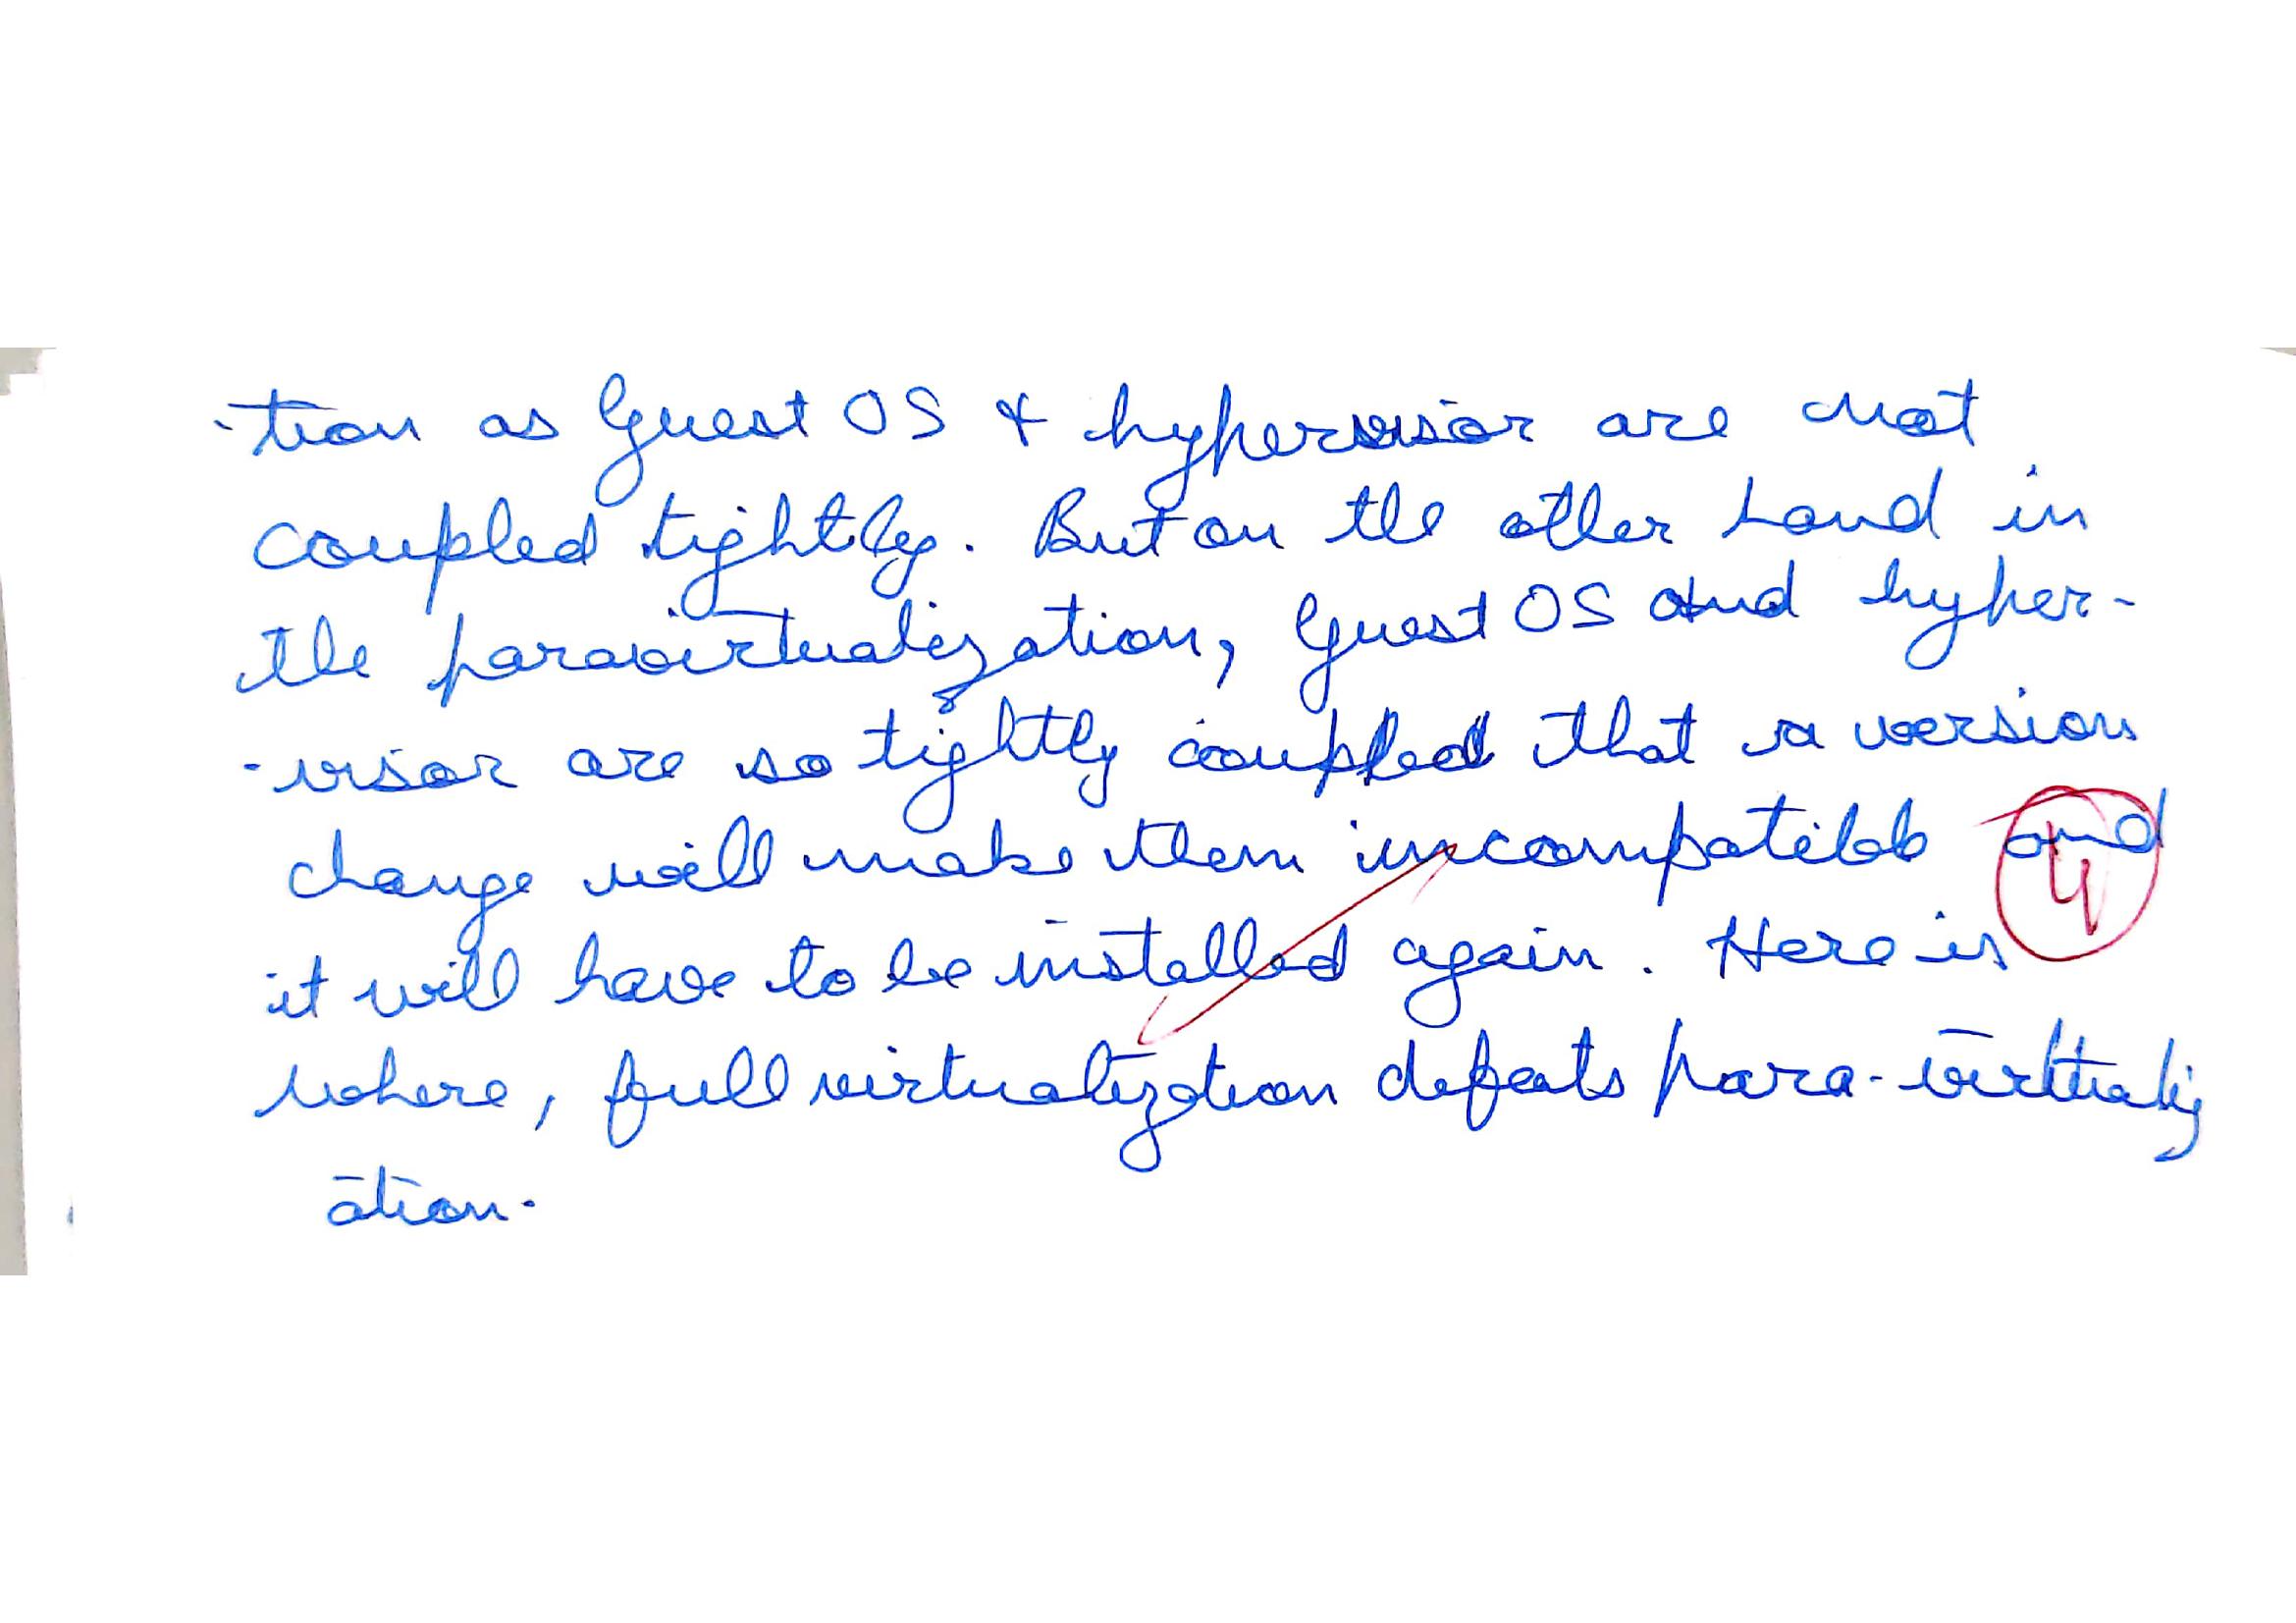 -tion as Guest OS & hypervisor are not
coupled tightly. But on the other hand in
the paravirtualization, Guest OS and hyper-
-visor are so tightly coupled that a version
change will make them incompatible and
4
it will have to be installed again. Here is
where, full virtualization defeats para-virtualiz
ation.